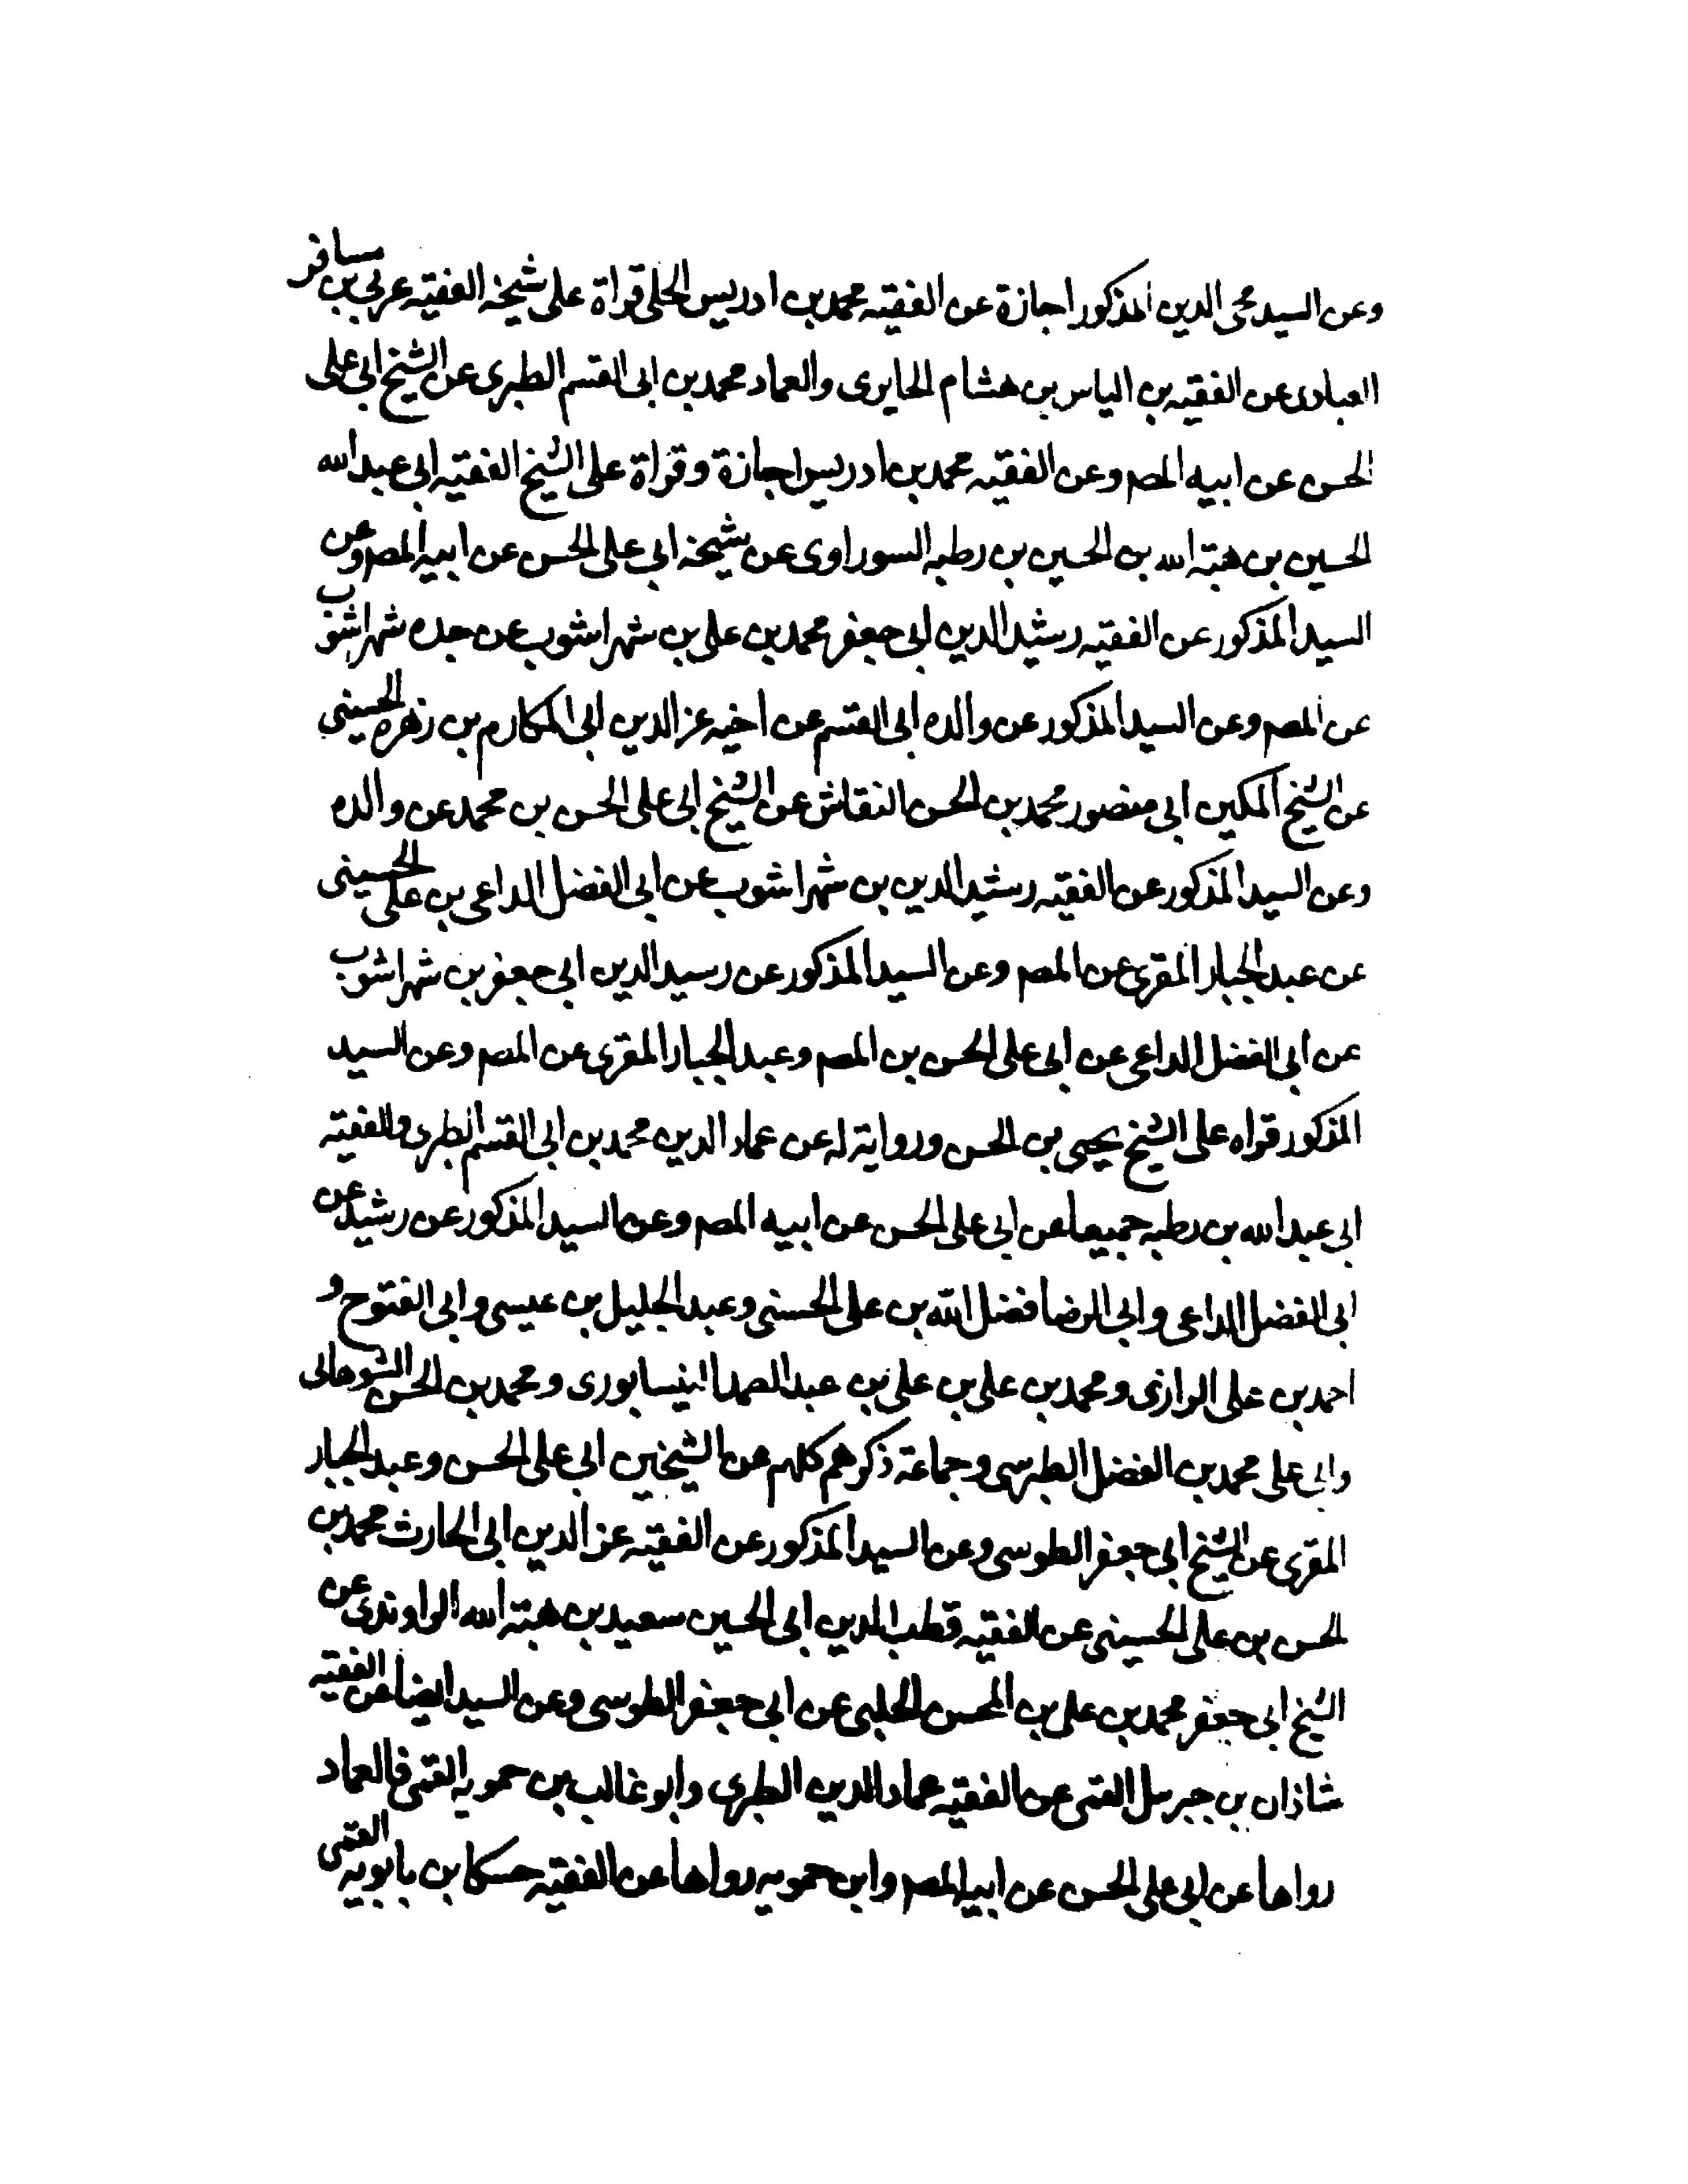 وعن السيد محى الدين المذكور اجازة عن الفقيه محمد بن ادريس الحلى قراة على شيخه الفقيه عربى بن مسافر
العبادى عن الفقيه بن الياس بن هشام الحايرى والعماد محمد بن ابى القسم الطبرى عن الشيخ ابى على
الحسن عن ابيه المصم وعن الفقيه محمد بن ادريس اجازة وقراة على الشيخ الفقيه ابى عبد الله
الحسين بن هبة الله بن الحسين بن رطبه السوراوى عن شيخه ابى على الحسن عن ابيه المصم وعن
السيد المذكور عن الفقيه رشيد الدين ابى جعفر محمد بن على بن شهراشوب عن جده شهراشوب
عن المصم وعن السيد المذكور عن والده ابى القسم عن اخيه عز الدين ابى المكارم بن زهره الحسينى
عن الشيخ المكين ابى منصور محمد بن الحسن النقاش عن الشيخ ابى على الحسن بن محمد عن والده
وعن السيد المذكور عن الفقيه رشيد الدين بن شهراشوب عن ابى الفضل الداعى بن على الحسينى
عن عبد الجبار المقرى عن المصم وعن السيد المذكور عن رسيد الدين ابى جعفر بن شهراشوب
عن ابى الفضل الداعى عن ابى على الحسن بن المصم وعبد الجبار المقرى عن المصم وعن السيد
المذكور قراه على الشيخ يحيى بن الحسن ورواية له عن عماد الدين محمد بن ابى القسم الطبرى والفقيه
ابى عبد الله بن رطبه جميعا عن ابى على الحسن عن ابيه المصم وعن السيد المذكور عن رشيد عن
ابى الفضل الداعى وابى الرضا فضل الله بن على الحسنى وعبد الجليل بن عيسى وابى الفتوح و
احمد بن على الرازى ومحمد بن على بن على بن عبد الصمد النيسابورى ومحمد بن الحسن الشوهانى
وابى على محمد بن الفضل الطبرسى وجماعة ذكرهم كلهم عن الشيخين ابى على الحسن وعبد الجبار
المقرى عن الشيخ ابى جعفر الطوسى وعن السيد المذكور عن الفقيه عز الدين ابى الحارث محمد بن
الحسن بن على الحسينى عن الفقيه قطب الدين ابى الحسين سعيد بن هبة الله الراوندى عن
الشيخ ابى جعفر محمد بن على بن المحسن الحلبى عن ابى جعفر الطوسى وعن السيد ايضا عن الفقيه
شاذان بن جبرسل القمى عن الفقيه عماد الدين الطبرى وابو غالب بن حمويه القمى فالعماد
رواها عن ابى على الحسن عن ابيه المصم وابن حمويه رواها عن الفقيه حسكا بن بابويه القمى